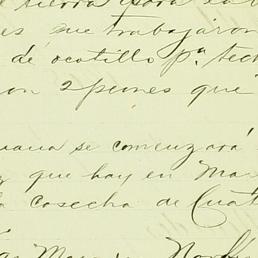 sierra para
es que trabajaron
de ocotillo pª tech
on 2 peones que
ana se comenzará
que hay en Mar
a cosecha de Cuat